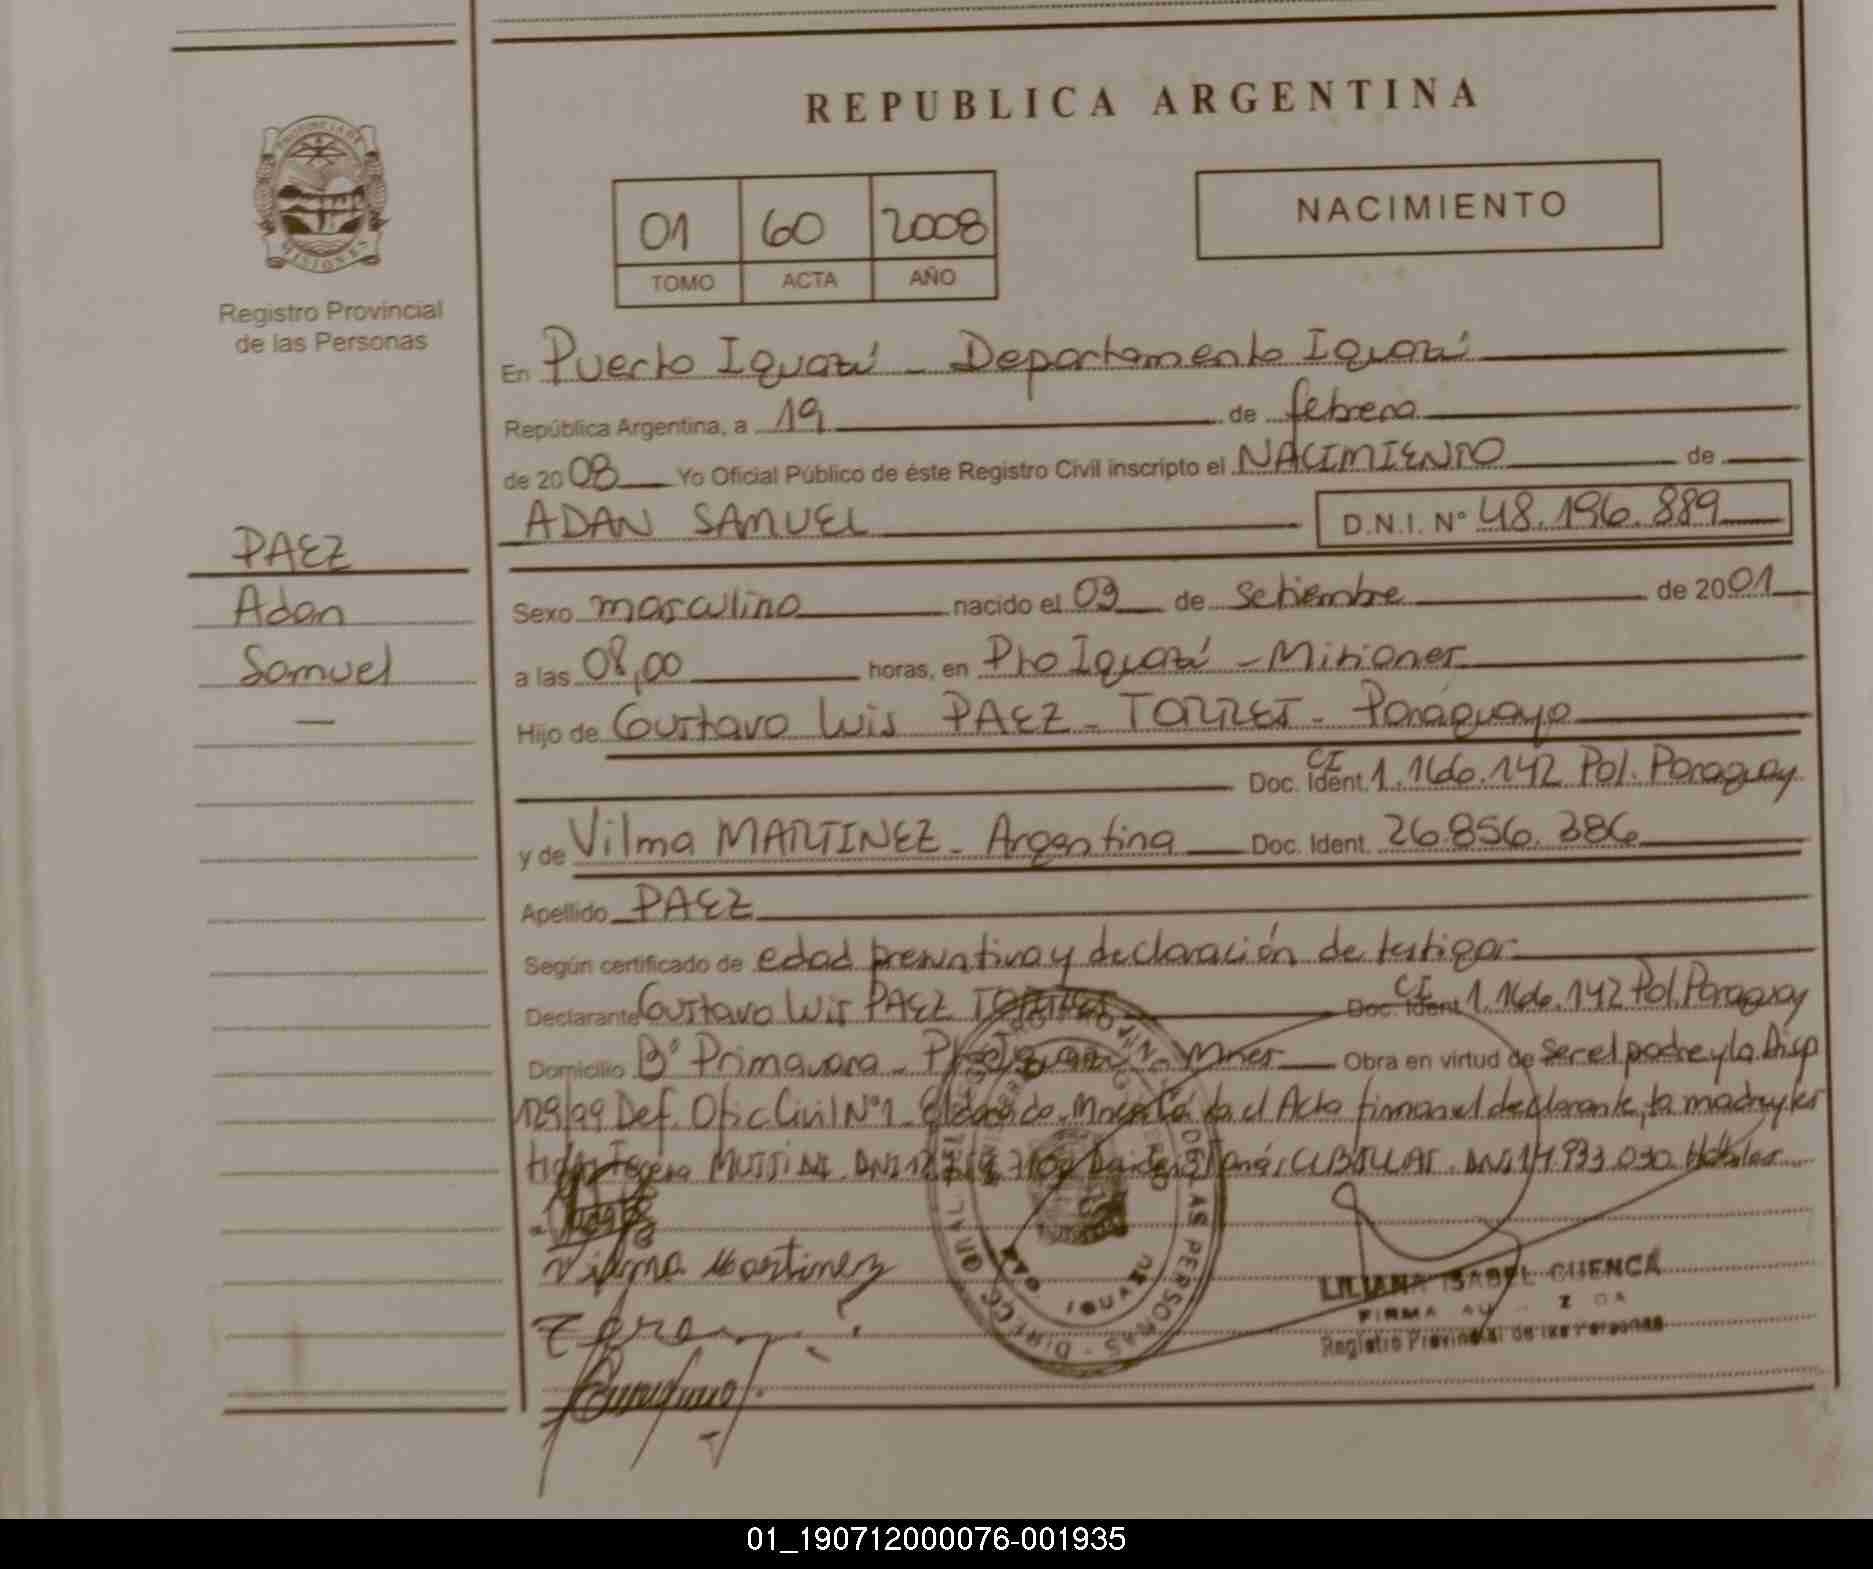 REPUBLICA ARGENTINA
PROVINCIA DE
MISIONES
Registro Provincial
de las Personas
01 60 2008
TOMO ACTA AÑO
NACIMIENTO
En Puerto Iguazú - Departamento Iguazú
República Argentina, a 19 de febrero
de 2008 Yo Oficial Público de éste Registro Civil inscripto el NACIMIENTO de
ADAN SAMUEL D.N.I. Nº 48.196.889
PAEZ
Adan
Samuel
Sexo masculino nacido el 03 de setiembre de 2001
a las 08,00 horas, en Pto Iguazú - Misiones
Hijo de Gustavo Luis PAEZ - TORRES - Paraguayo
Doc. Ident. CI 1.166.142 Pol. Paraguay
y de Vilma MARTINEZ - Argentina Doc. Ident. 26.856.386
Apellido PAEZ
Según certificado de edad presuntiva y declaración de testigos
Declarante Gustavo Luis PAEZ TORRES Doc. Ident CI 1.166.142 Pol. Paraguay
Domicilio Bº Primavera - Pto Iguazú - Mnes Obra en virtud de ser el padre y la Disp
129/99 Def. Ofic Civil Nº1 - Eldorado - Mnes el Acta firman el declarante, la madre y los
DNI 14.933.030
Vilma Martinez
DE LAS PERSONAS
IGUAZU
LILIANA ISABEL CUENCA
FIRMA
Registro Provincial de las Personas
01_190712000076-001935